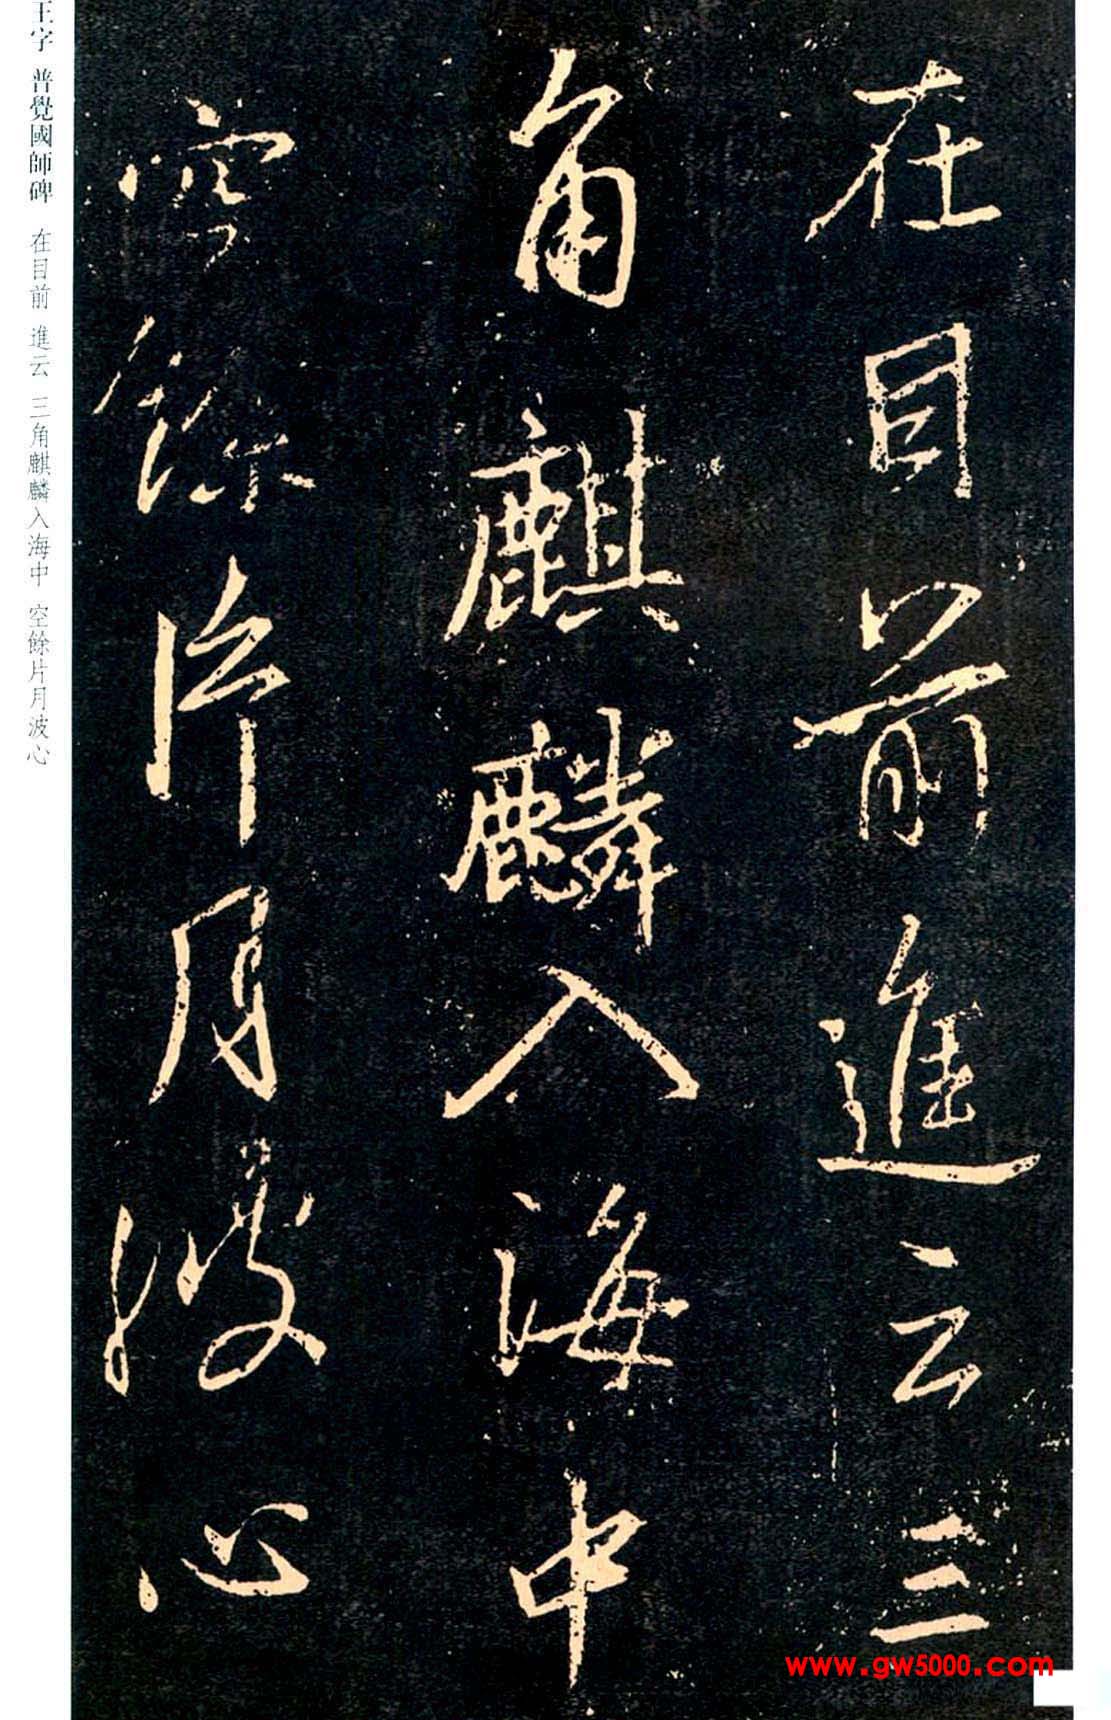 在目前進云三
角麒麟入海中
空餘片月波心
王字 普覺國師碑 在目前 進云 三角麒麟入海中 空餘片月波心
www.gw5000.com